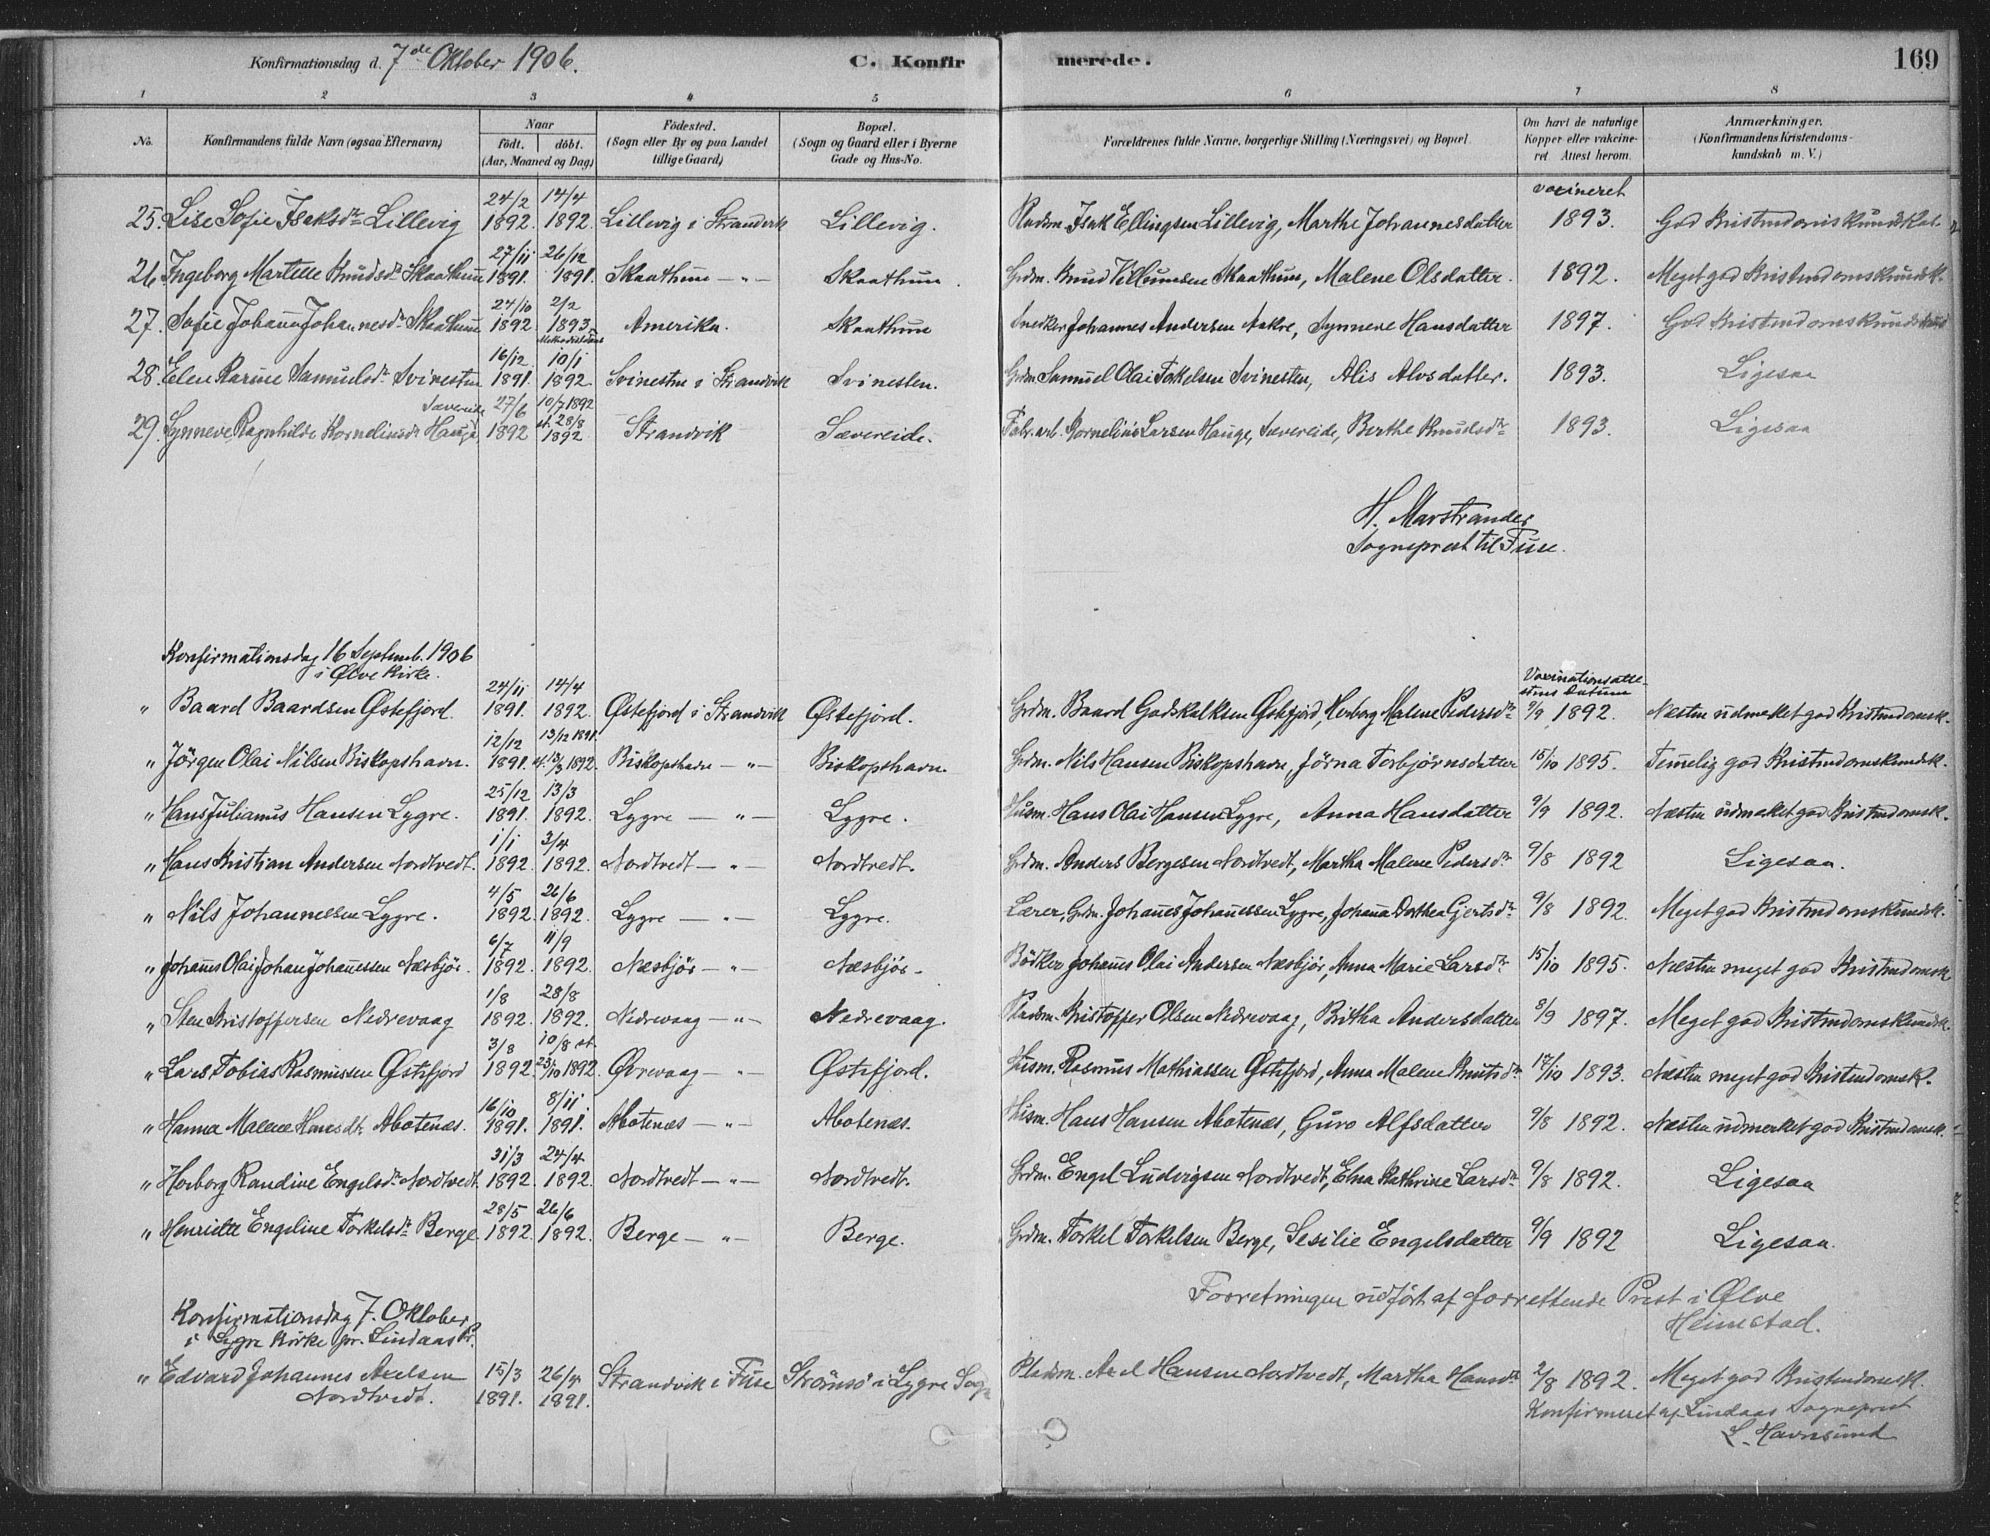 Konfirmationsdag d. 7de Oktober 1906. C. Konfirmerede. 169
1 2 3 4 5 6 7 8
No. Konfirmandens fulde Navn (ogsaa Efternavn) Naar født. døbt. (Aar, Maaned og Dag) Fødested. (Sogn eller By og paa Landet tillige Gaard) Bopæl. (Sogn og Gaard eller i Byerne Gade og Hus-No. Forældrenes fulde Navne, borgerlige Stilling (Næringsvei) og Bopæl. Om havt de naturlige Kopper eller vakcineret. Attest herom. Anmærkninger. (Konfirmandens Kristendomskundskab m. V.)
25. Lise Sofie Isaksdtr Lillevig 24/2 1892. 14/4 1892. Lillevig i Strandvik Lillevig. Pladsm. Isak Ellingsen Lillevig, Marthe Johannesdatter vacineret 1893. God Kristendomskundskab.
26. Ingeborg Martelle Knudsdr Skaathum 27/11 1891. 26/12 1891. Skaathum - " - Skaathum. Grdm. Knud Skaathum, Malene Olsdatter. 1892. Meget god Kristendomskundsk.
27. Sofie Johana Johannesdr Skaathum 24/10 1892. 2/2 1893. Amerika. Skaathum Snedker Johannes Andersen Aakre, Synneve Hansdatter 1897. God Kristendomskundskab
28. Elen Karine Samuelsdr Svinesten 16/12 1891. 10/1 1892. Svinesten i Strandvik Svinesten. Grdm. Samuel Olai Torkelsen Svinesten, Alis Alvsdatter. 1893. Ligesaa
29. Synneve Ragnhilde Kornelinsdr Hauge Sævereide 27/6 1892 10/7 1892 st. 28/8 1892. Strandvik Sævereide. Fabr.arb. Kornelius Larsen Hauge, Sævereide, Berthe Knudsdtr 1893. Ligesaa
H. Marstrander
Sogneprest til Fuse.
Konfirmationsdag 16 Septemb. 1906
i Ølve Kirke.
Vaccinationsattestens Datum
" Baard Baardsen Østefjord. 24/11 1891. 14/4 1892. Østefjord i Strandvik Østefjord. Grdm. Baard Godskalksen Østefjord, Herborg Malene Pedersdtr 9/9 1892. Næsten udmerket god Kristendomsk.
" Jörgen Olai Nilsen Biskopshavn. 12/12 1891. 13/12 1891. st. 13/3 1892. Biskopshavn - " - Biskopshavn. Grdm. Nils Hansen Biskopshavn, Jörna Torbjørnsdatter 15/10 1895. Temmelig god Kristendomskundsk.
" Hans Julianus Hansen Lygre. 25/12 1891. 13/3 1892. Lygre - " - Lygre. Husm. Hans Olai Hansen Lygre, Anna Hansdatter 9/9 1892. Næsten udmerket god Kristendomsk.
" Hans Kristian Andersen Nordtvedt. 1/1 1892. 3/4 1892. Nordtvedt - " - Nordtvedt. Grdm. Anders Bergesen Nordtvedt, Martha Malene Pedersdtr 9/8 1892 Ligesaa.
" Nils Johannessen Lygre. 4/5 1892. 26/6 1892. Lygre - " - Lygre. Lærer, Grdm. Johanes Johanessen Lygre, Johana Dorthea Gjertsdtr 9/8 1892. Meget god Kristendomskundsk.
" Johanes Olai Johan Johanessen Næsbjör. 6/7 1892. 11/9 1892. Næsbjör - " - Næsbjör - Bödker Johanes Olai Andersen Næsbjör, Anna Marie Larsdtr 15/10 1895. Næsten meget god Kristendomsk
" Sten Kristoffersen Nedrevaag 1/8 1892. 28/8 1892. Nedrevaag - " - Nedrevaag. Pladsm. Kristoffer Olsen Nedrevaag, Britha Andersdatter 8/9 1897. Meget god Kristendomskundsk.
" Lars Tobias Rasmussen Østefjord 3/8 1892. 10/8 st. 23/10 1892. Øvrevaag - " - Østefjord. Husm. Rasmus Mathiassen Østefjord, Anna Malene Knutsdtr 17/10 1893. Næsten meget god Kristendomsk.
" Hanna Malene Hansdt. Abotenæs. 16/10 1891. 8/11. 1891. Abotenæs - " - Abotenæs. Husm. Hans Hansen Abotenæs, Guro Alfsdatter 9/8 1892. Næsten udmerket god Kristendomsk.
" Herborg Randine Engelsdr Nordtvedt. 31/3 1892. 24/4 1892. Nordtvedt - " - Nordtvedt. Grdm. Engel Ludvigsen Nordtvedt, Elna Kathrine Larsdtr 9/8 1892. Ligesaa
" Henriette Engeline Torkelsdr Berge 28/5 1892. 26/6 1892. Berge - " - Berge. Grdm. Torkel Torkelsen Berge, Sesilie Engelsdatter 9/9 1892 Ligesaa.
Forretningen udført af forrettende Prest i Ølve
Heimstad.
Konfirmationsdag 7. Oktober
i Lygre Kirke pr. Lindaas Pr.
" Edvard Johannes Axelsen Nordtvedt. 15/3 1891. 26/4 1891. Strandvik i Fuse Strömsö i Lygre Sogn Pladsm. Axel Hansen Nordtvedt, Martha Hansdtr 2/8 1892. Meget god Kristendomsk.
Konfirmeret af Lindaas Sogneprest
L. Havnsund